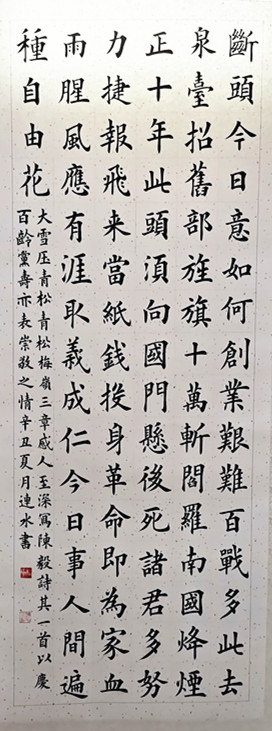 斷頭今日意如何創業艱難百戰多此去
泉臺招舊部旌旗十萬斬閻羅南國烽煙
正十年此頭湏向國門懸後死諸君多努
力捷報飛来當紙錢投身革命即為家血
雨腥風應有涯取義成仁今日事人間遍
種自由花
大雪压青松青松梅嶺三章感人至深寫陳毅詩其一首以慶
百齡黨壽亦表崇敬之情辛丑夏月連水書